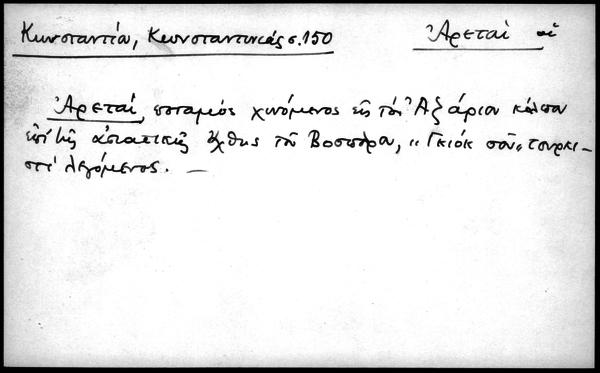 Κωνσταντία, Κωνσταντινιάς σ. 150
Ἀρεταὶ αἱ
Ἀρεταί, ποταμὸς χυνόμενος εἰς τὸν Ἀζάριον κόλπον
ἐπὶ τῆς ἀσιατικῆς ὄχθης τοῦ Βοσπόρου, „Γκιὸκ σοῦ„ τουρκι-
στὶ λεγόμενος. —